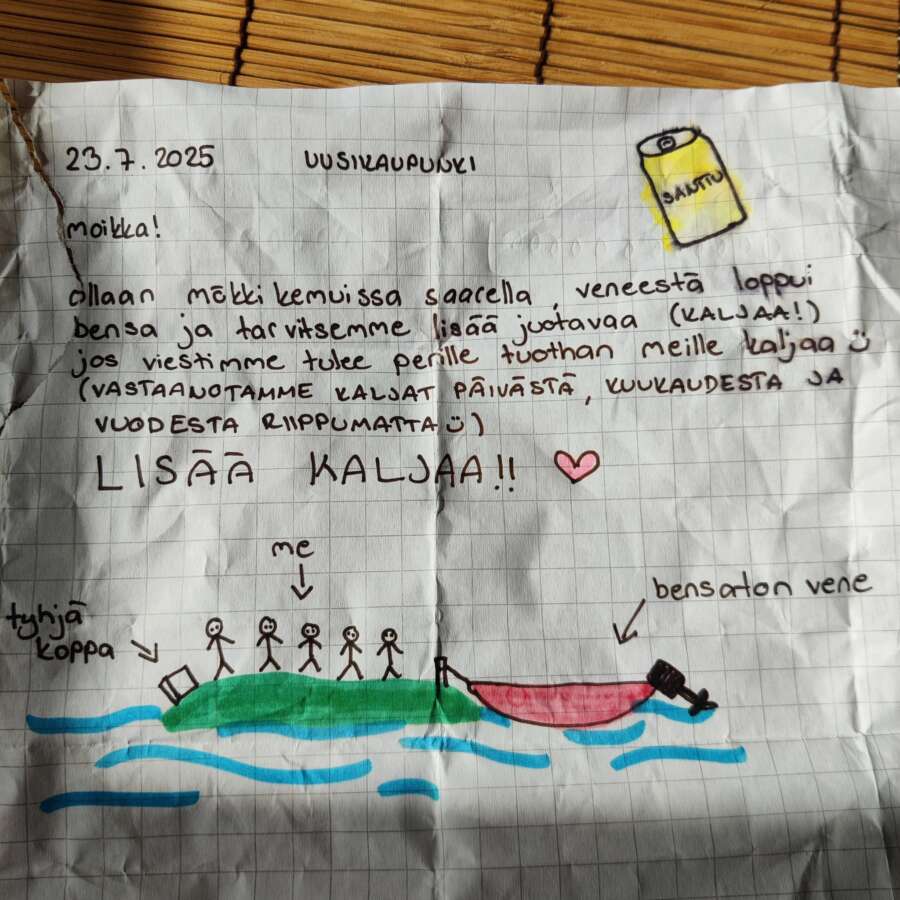 23.7.2025 UUSIKAUPUNKI
SANTTU
moikka!
ollaan mökkikemuissa saarella, veneestä loppui
bensa ja tarvitsemme lisää juotavaa (KALJAA!)
jos viestimme tulee perille tuothan meille kaljaa ☺
(VASTAANOTAMME KALJAT PÄIVÄSTÄ, KUUKAUDESTA JA
VUODESTA RIIPPUMATTA ☺)
LISÄÄ KALJAA!! ♥
me
bensaton vene
tyhjä
koppa